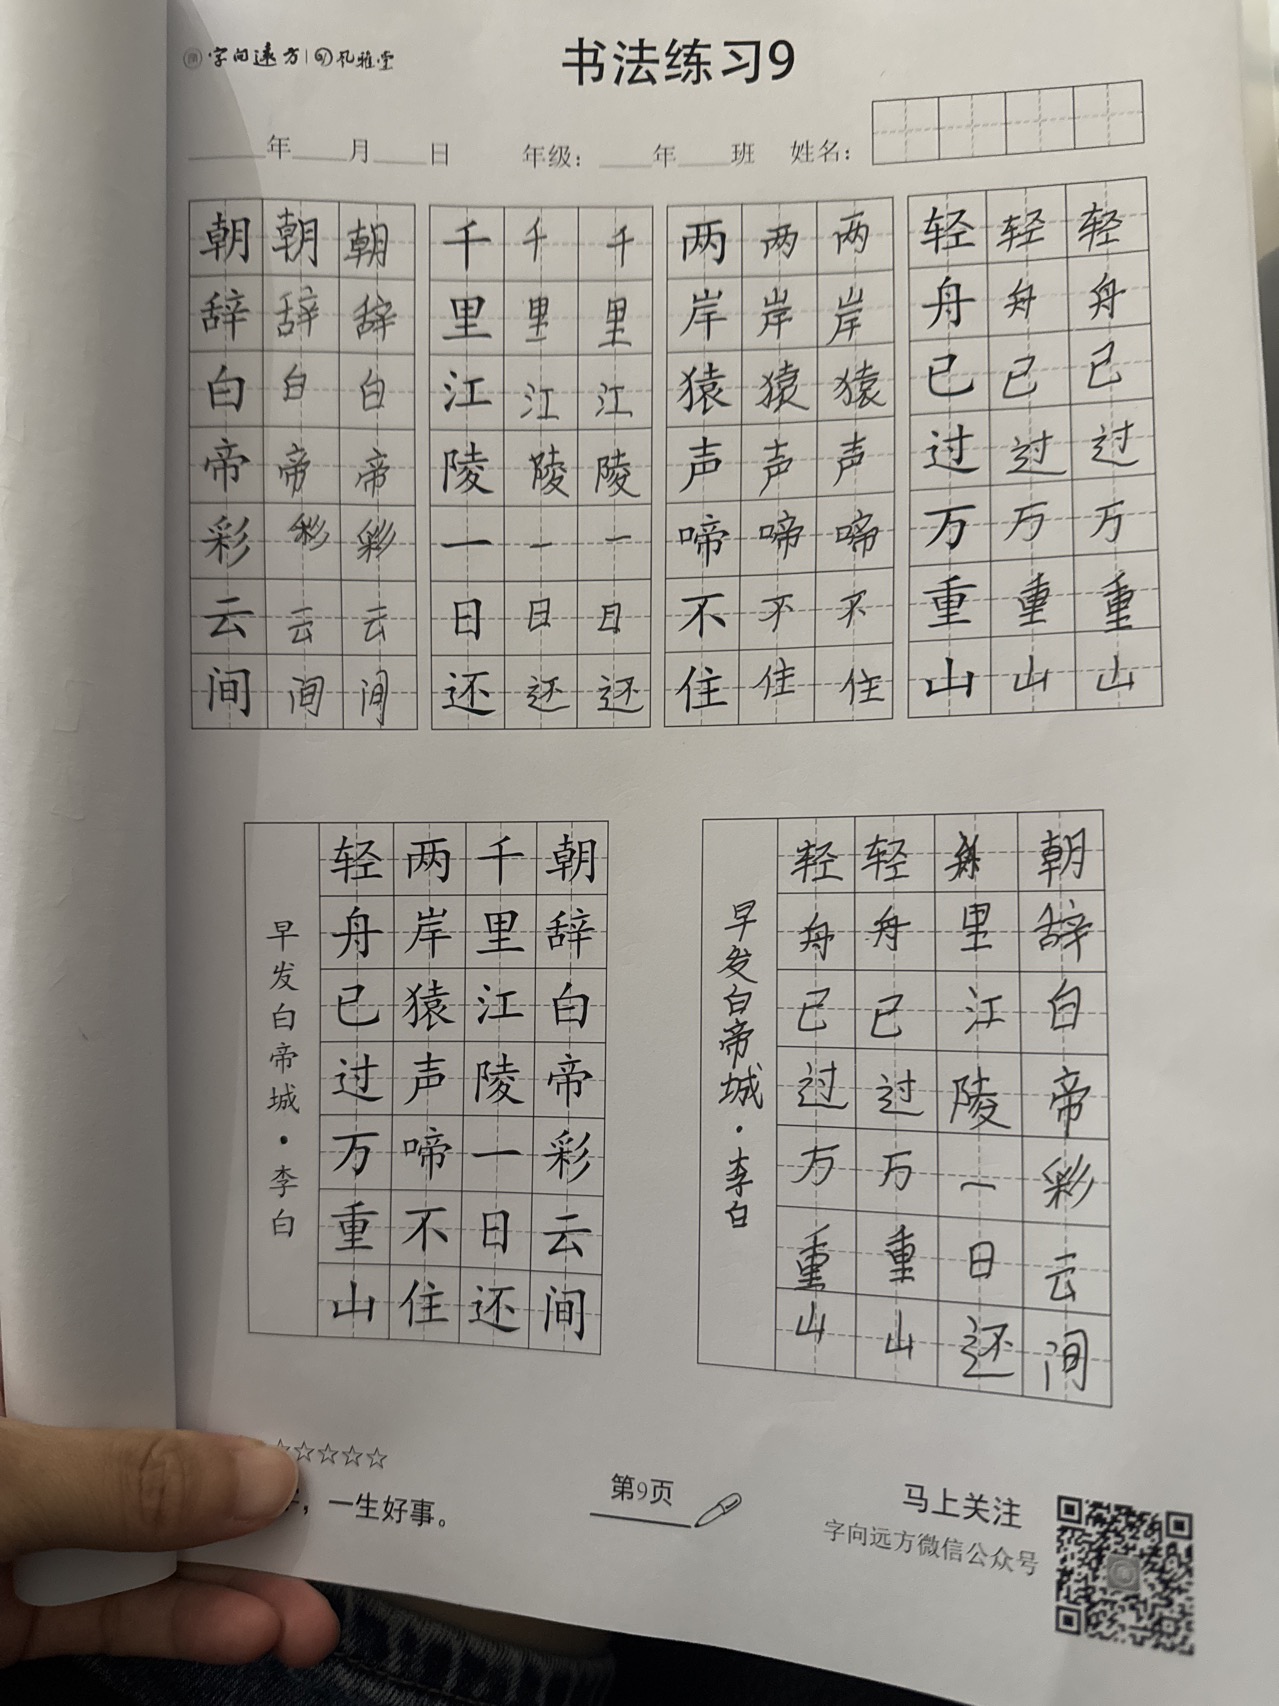 字向遠方 | 孔雅堂
书法练习9
年 月 日 年级： 年 班 姓名：
朝朝朝 千千千 两两两 轻轻轻
辞辞辞 里里里 岸岸岸 舟舟舟
白白白 江江江 猿猿猿 已已已
帝帝帝 陵陵陵 声声声 过过过
彩彩彩 一一一 啼啼啼 万万万
云云云 日日日 不不不 重重重
间间间 还还还 住住住 山山山
朝辞白帝彩云间
千里江陵一日还
两岸猿声啼不住
轻舟已过万重山
早发白帝城·李白
朝辞白帝彩云间
里江陵一日还
轻舟已过万重山
轻舟已过万重山
早发白帝城·李白
☆☆☆☆☆
，一生好事。
第9页
马上关注
字向远方微信公众号